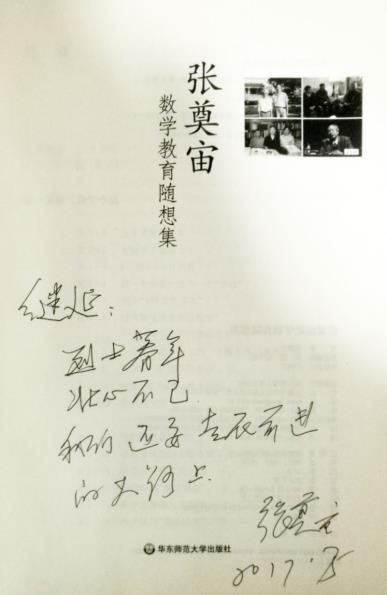 张奠宙
数学教育随想集
继延：
烈士暮年
壮心不已
我们还要走在前进
的大路上.
张奠宙
2017.
华东师范大学出版社